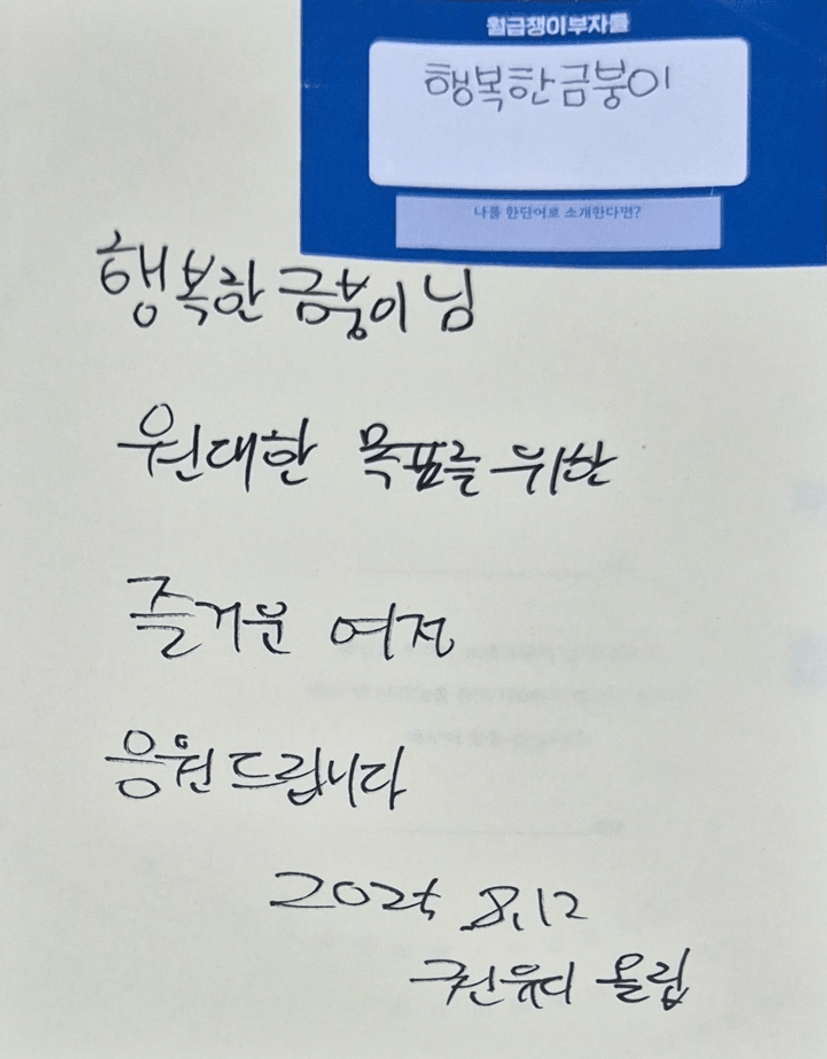 월급쟁이부자들
행복한금붕이
나를 한단어로 소개한다면?
행복한 금붕이 님
원대한 목표를 위한
즐거운 여정
응원드립니다
2025. 8. 12
권유디 올림